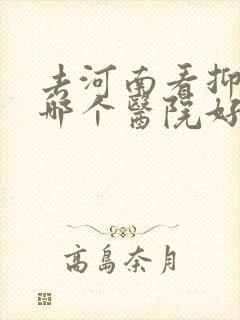 去河南看抑
哪个醫院好
高島奈月